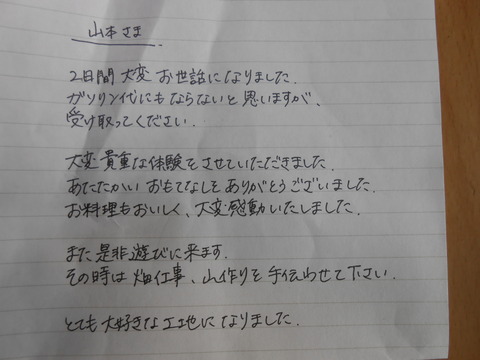 山本さま
2日間 大変 お世話になりました.
ガソリン代にも ならないと 思いますが、
受け取ってください.
大変 貴重な体験を させていただきました.
あたたかい おもてなしを ありがとうございました.
お料理もおいしく、大変感動いたしました.
また 是非 遊びに来ます.
その時は 畑仕事、山作りを 手伝わせて 下さい.
とても 大好きな土地に なりました.